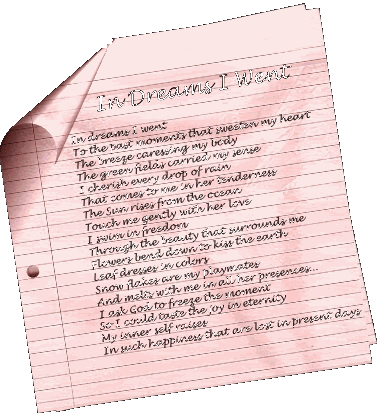 In Dreams I Went
In dreams i went
To the past moments that sweeten my heart
The breeze caressing my body
The green fields carried my sense
I cherish every drop of rain
That comes to me in her tenderness
The Sun rises from the ocean
Touch me gently with her love
I swim in freedom
Through the beauty that surrounds me
Flowers bend down to kiss the earth
Leaf dresses in colors
Snow flakes are my playmates
And melts with me in all her presences...
I ask God to freeze the moment
So I could taste the joy in eternity
My inner self raises
In such happiness that are lost in present days